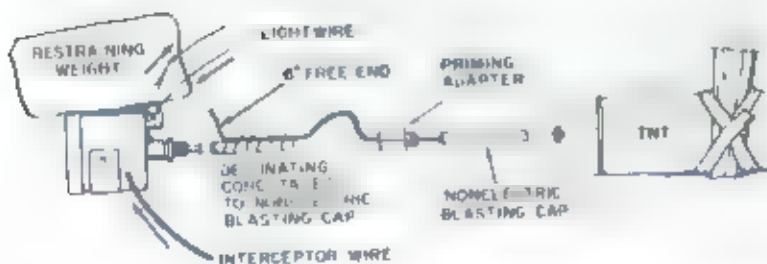 RESTRAINING
WEIGHT
LIGHTWIRE
6" FREE END
PRIMING
ADAPTER
TNT
TO
BLASTING CAP
NONELECTRIC
BLASTING CAP
INTERCEPTOR WIRE